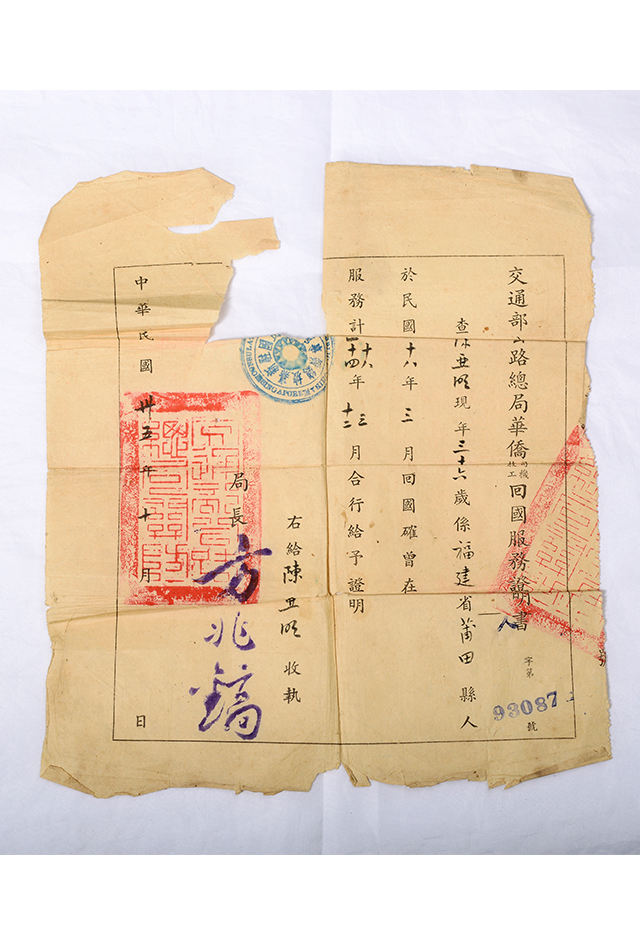 交通部公路總局華僑機工回國服務證明書
字第93087號
查陳亞明現年三十六歲係福建省莆田縣人
於民國十八年三月回國確曾在
服務計
年
月合行給予證明
右給陳亞明收執
局長方兆鎬
中華民國卅五年十月日